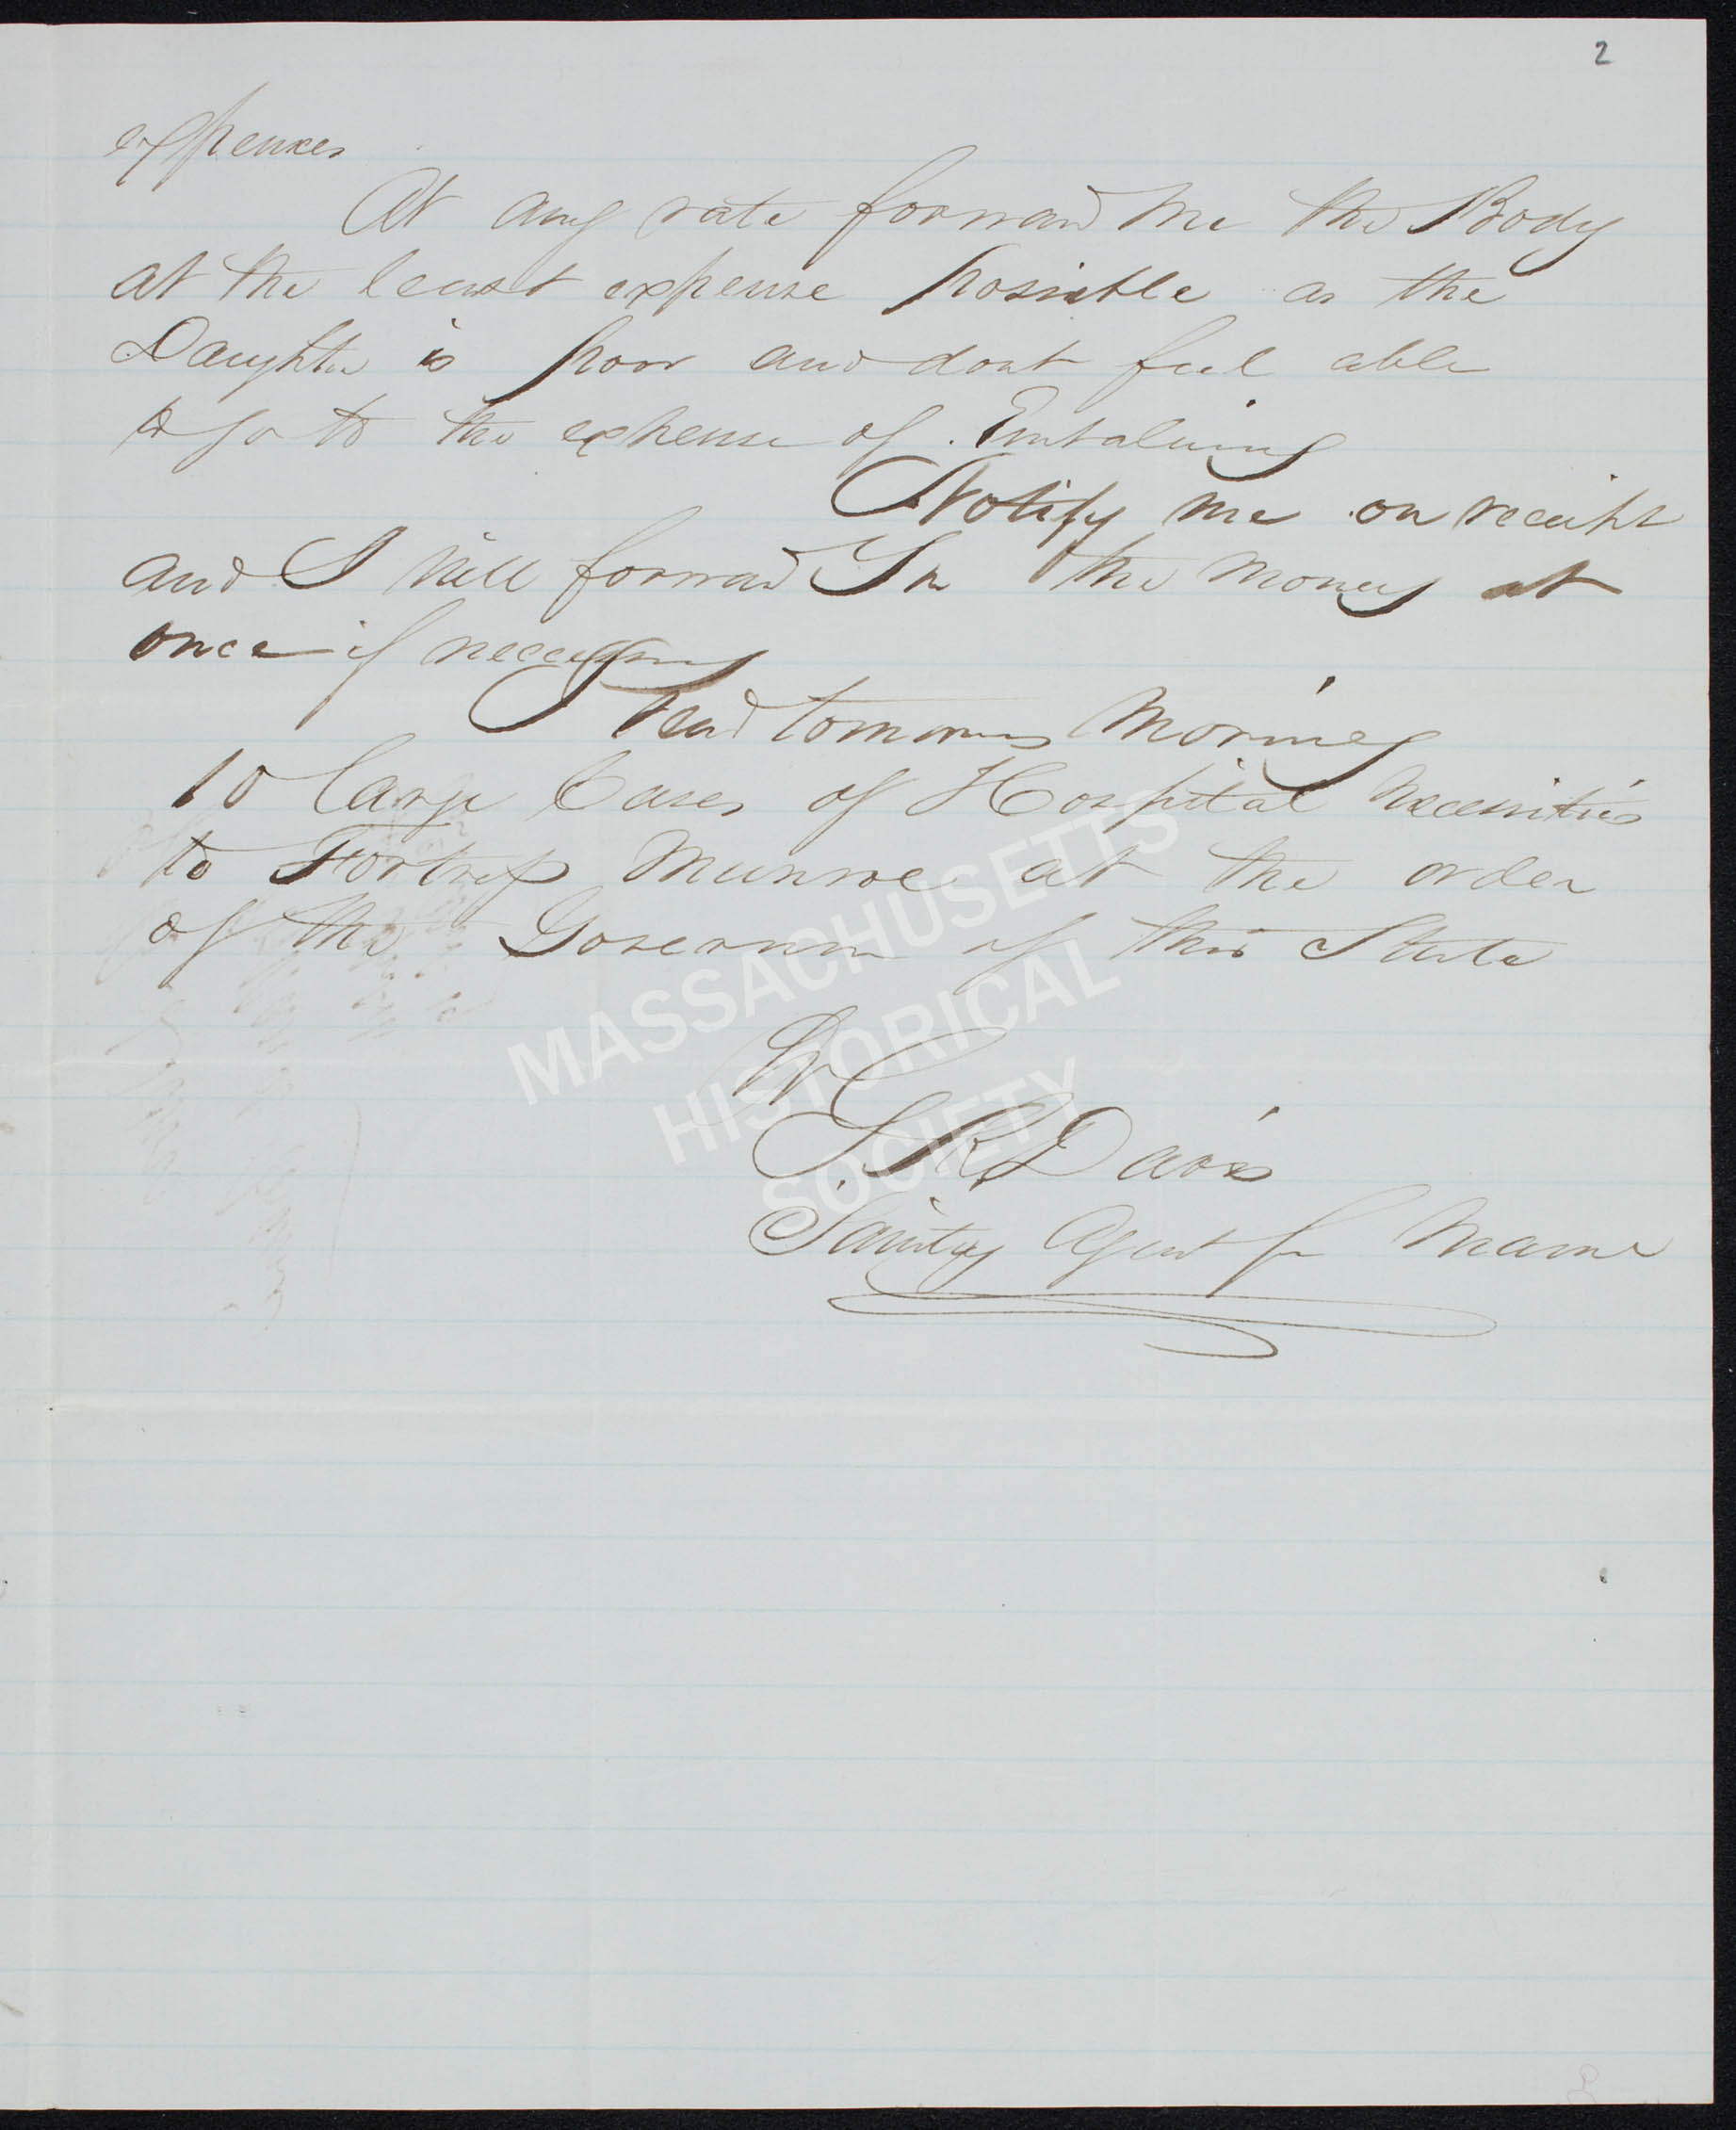 2
expenses
At any rate forward me the Body
at the least expense possible as the
Daughter is poor and dont feel able
to go to the expense of Embalming
Notify me on receipt
and I will forward You the money at
once if necessary
I send tomorrow morning
10 large Cases of Hospital necessities
to Fortress Munroe at the order
of the Governor of this State
MASSACHUSETTS
HISTORICAL
SOCIETY
R Davis
Sanitary Agent for Maine